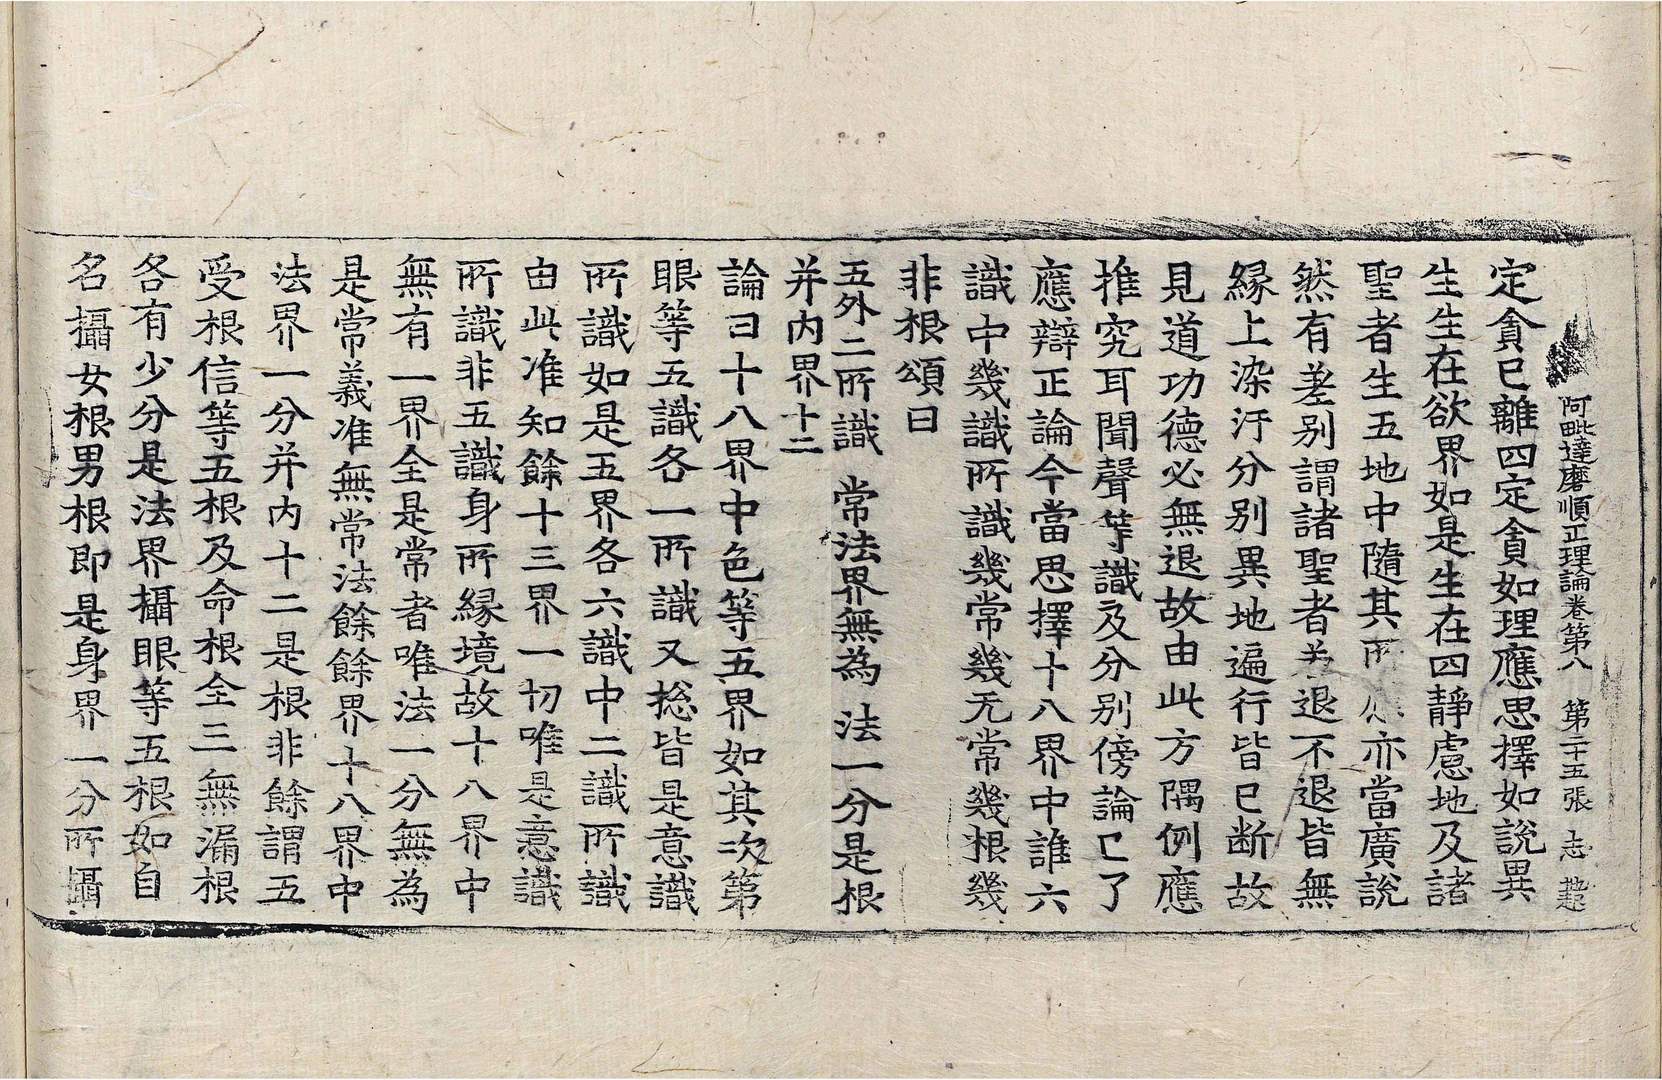 阿毗達磨順正理論卷第八　第二十五張　志
定貪已離四定貪如理應思擇如說異
生生在欲界如是生在四靜慮地及諸
聖者生五地中隨其所應亦當廣說
然有差別謂諸聖者若退不退皆無
緣上染汙分別異地遍行皆已断故
見道功德必無退故由此方隅例應
推究耳聞聲等識及分別傍論已了
應辯正論今當思擇十八界中誰六
識中幾識所識幾常幾无常幾根幾
非根頌曰
五外二所識　常法界無為　法一分是根
并內界十二
論曰十八界中色等五界如其次第
眼等五識各一所識又捴皆是意識
所識如是五界各六識中二識所識
由此准知餘十三界一切唯是意識
所識非五識身所緣境故十八界中
無有一界全是常者唯法一分無為
是常義准無常法餘餘界十八界中
法界一分并內十二是根非餘謂五
受根信等五根及命根全三無漏根
各有少分是法界攝眼等五根如自
名攝女根男根即是身界一分所攝